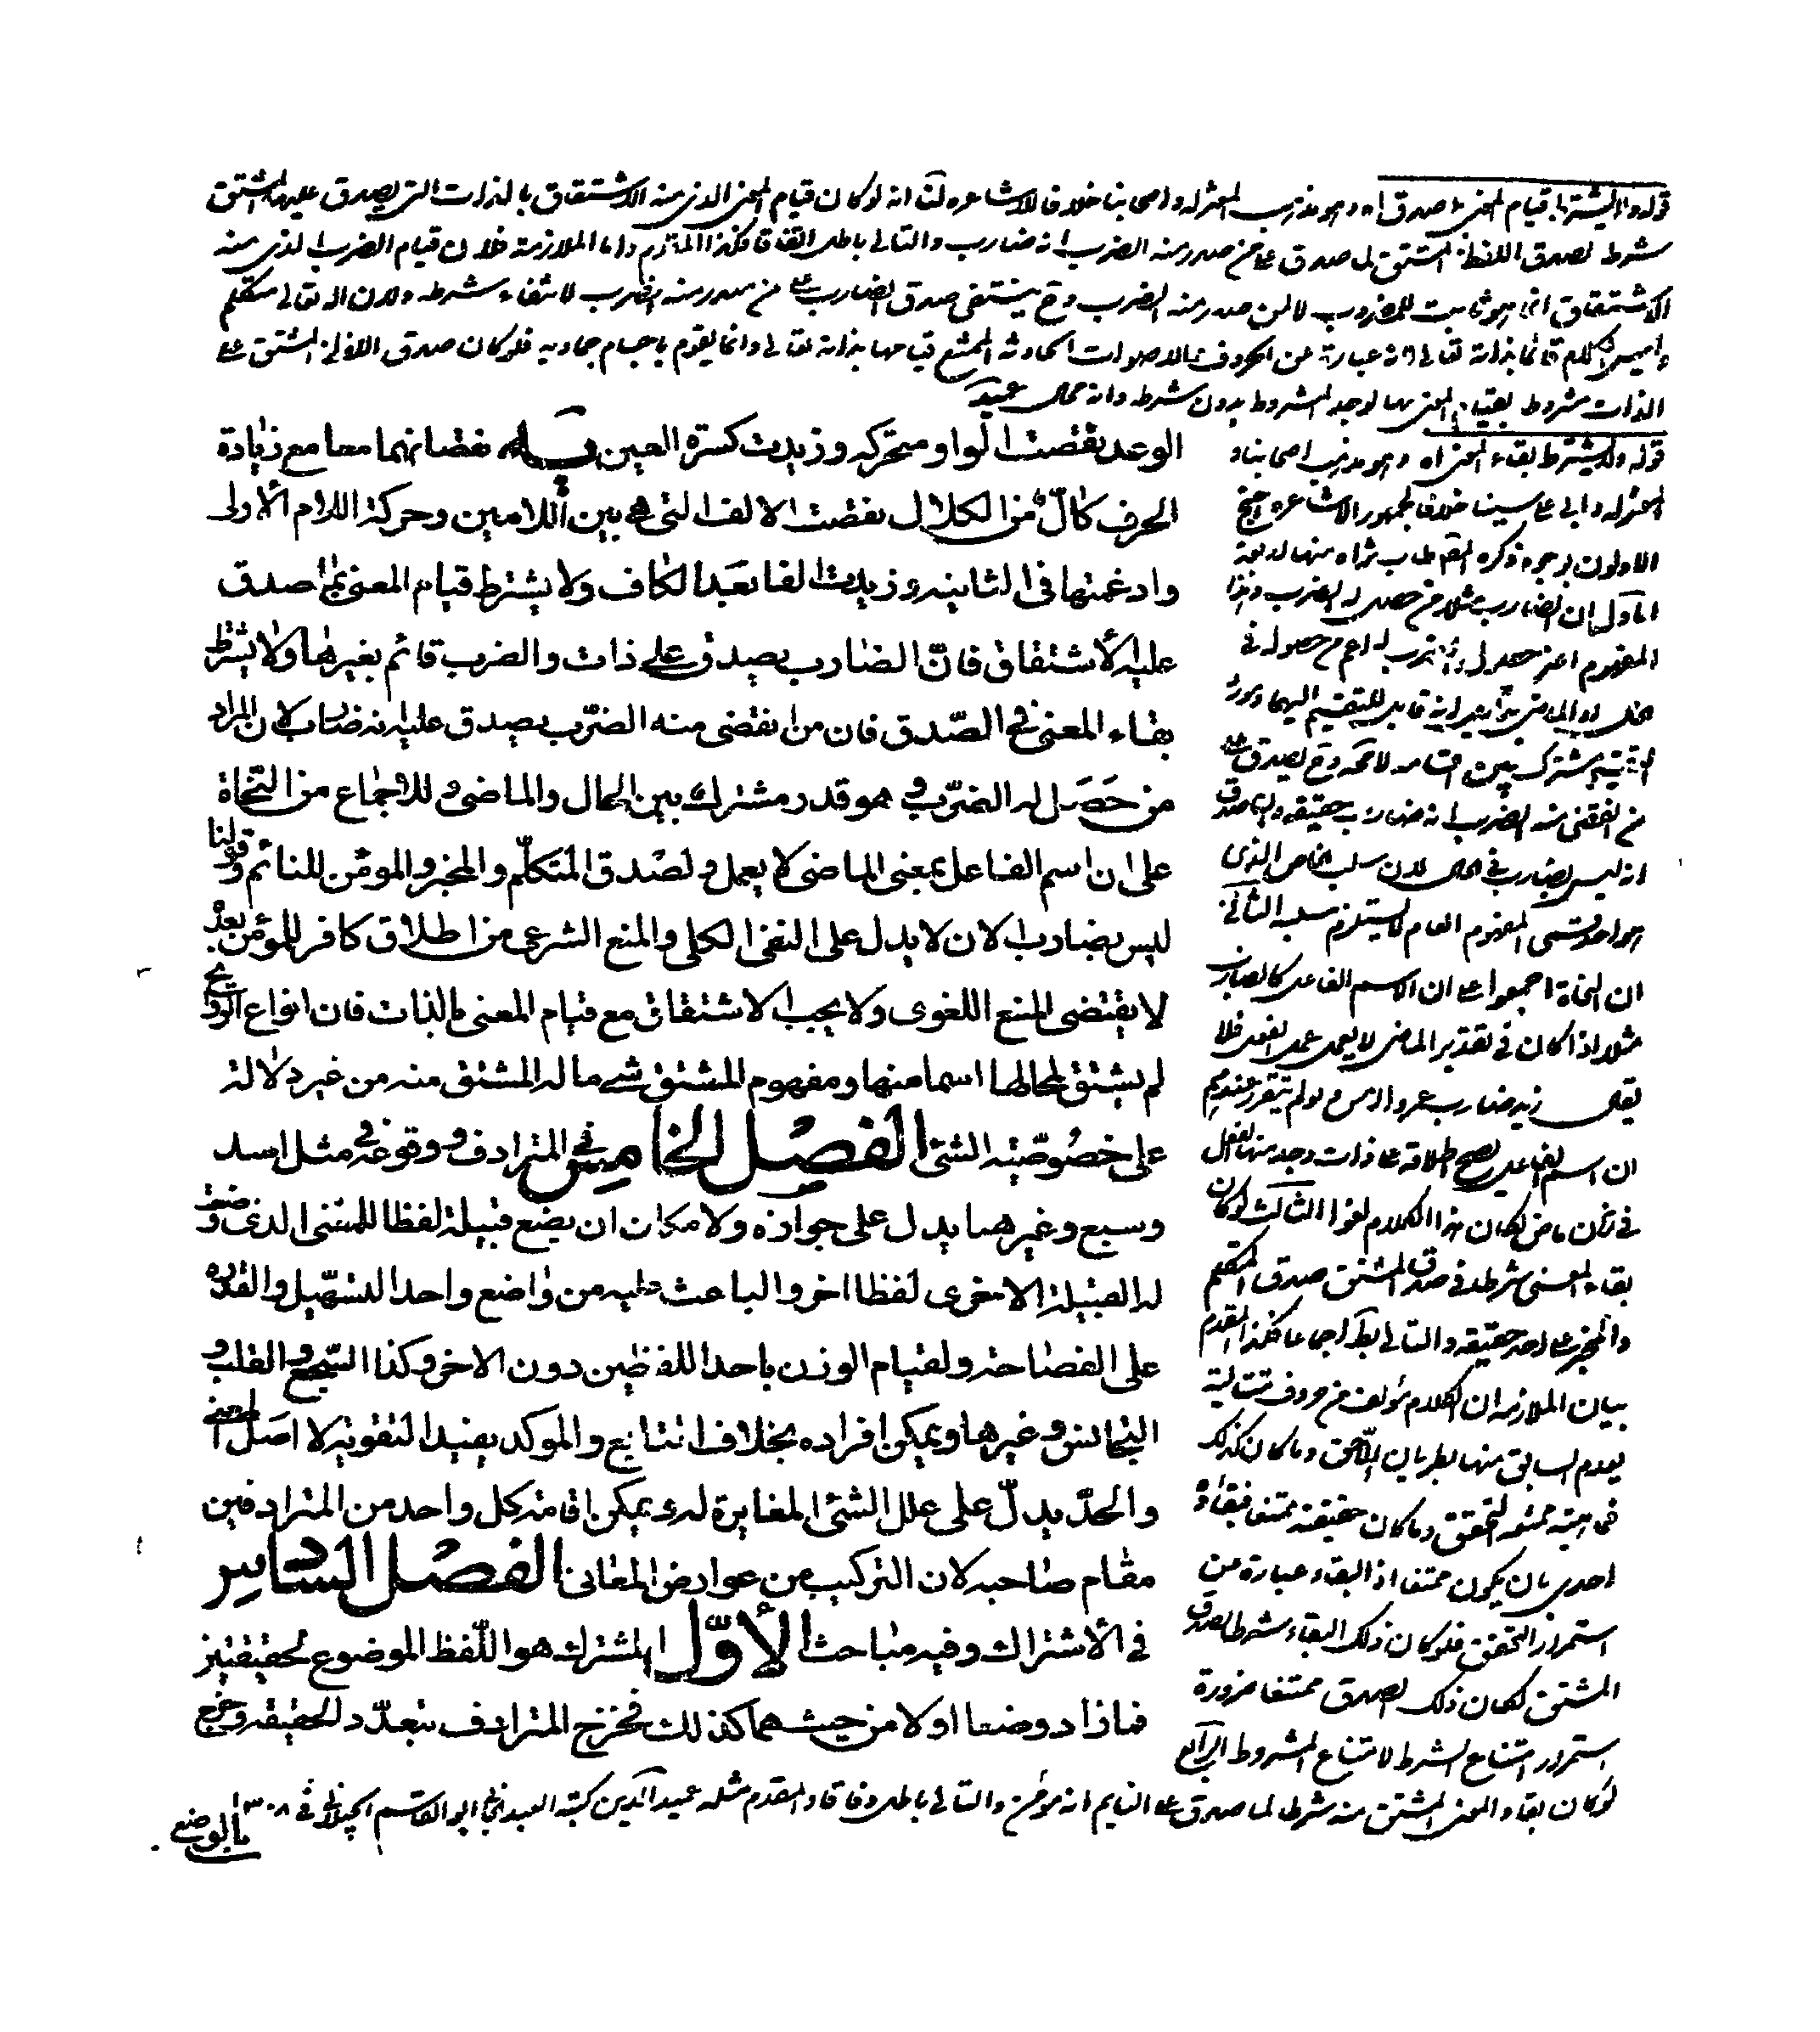 قوله ولا يشترط قيام المعنى بما صدق اه وهو مذهب المعتزلة واصحابنا خلافا للاشاعره لنا انه لو كان قيام المعنى الذى منه الاشتقاق بالذات التى يصدق عليها المشتق
شرط لصدق اللفظ المشتق لما صدق على من صدر منه الضرب انه ضارب والتالى باطل اتفاقا فكذا الملزوم واما الملازمة فلان قيام الضرب الذى منه
الاشتقاق انما هو ثابت للمضروب لا لمن صدر منه الضرب وح ينتفى صدق الضارب على من صدر منه الضرب لانتفاء شرطه ولان الله تعالى متكلم
وليس الكلام قائما بذاته تعالى لانه عبارة عن الحروف والاصوات الحادثه الممتنع قيامها بذاته تعالى وانما يقوم باجسام جماديه فلو كان صدق اللفظ المشتق على
الذات مشروط بقيام المعنى بها لوجد المشروط بدون شرطه وانه محال عميد
الوعد نقصت الواو متحركه وزيدت كسرة العين يه نقصانهما معا مع زيادة
الحرف كالّ من الكلال نقصت الالف التى هى بين اللامين وحركة اللام الاولى
وادغمتها فى الثانيه وزيدت الفا بعد الكاف ولا يشترط قيام المعنى بما صدق
عليه الاشتقاق فانّ الضارب يصدق على ذات والضرب قائم بغيرها ولا يشترط
بقاء المعنى فى الصّدق فان من انقضى منه الضّرب يصدق عليه انه ضارب لان المراد
من حَصَل له الضّرب و هو قدر مشترك بين الحال والماضى و للاجماع من النحاة
على ان اسم الفاعل بمعنى الماضى لا يعمل و لصدق المتكلّم والمخبر والمؤمن للنائم و قولنا
ليس بضارب الان لا يدل على النفى الكلى والمنع الشرعى من اطلاق كافر للمؤمن بعد
لا يقتضى المنع اللغوى ولا يجب الاشتقاق مع قيام المعنى بالذات فان انواع الروايح
لم يشتق لمحالها اسما منها ومفهوم المشتق شىء ما له المشتق منه من غير دلالة
على خصُوصّية الشئ الفصل الخامس فى المترادف و وقوعه فى مثل اسد
وسبع وغيرهما يدل على جوازه ولامكان ان يضع قبيلة لفظا للمعنى الذى وضعت
له القبيلة الاخرى لفظا اخر والباعث عليه من واضع واحد التسهيل والقدره
على الفصاحة ولقيام الوزن باحد اللفظين دون الاخر وكذا السّجع و القلب و
التجانس وغيرها ويمكن افراده بخلاف التابع والموكد يفيد التقوية لا اصل المعنى
والحدّ يدلّ على علل الشئ المغايرة له ويمكن اقامة كل واحد من المترادفين
مقام صاحبه لان التركيب من عوارض المعانى الفصل السادس
فى الاشتراك وفيه مباحث الأوّل المشترك هو اللّفظ الموضوع لحقيقتين
فما زاد وضعا اولا من حيث هما كذلك فخرج المترادف بتعدّد الحقيقة وخرج
بالوضع
قوله ولا يشترط بقاء المعنى اه وهو مذهب اصحابنا و
المعتزله وابى على سينا خلافا لجمهور الاشاعره احتج
الاولون بوجوه ذكره المصنف طاب ثراه منها اربعة
الاول ان الضارب مثلا من حصل له الضرب وهذا
المفهوم اعنى حصول الضرب له اعم من حصوله فى
الحال او الماضى بدليل انه قابل للتقسيم اليهما ومورد
القسمة مشترك بين اقسامه لا محه وح يصدق على
من انقضى منه الضرب انه ضارب حقيقه وانما صدق
انه ليس بضارب فى الحال لان سلب الخاص الذى
هو احد قسمى المفهوم العام لا يستلزم سلبه الثانى
ان النحاة اجمعوا على ان الاسم الفاعل كالضارب
مثلا اذا كان فى تقدير الماضى لا يعمل عمل الفعل فلا
يقال زيد ضارب عمروا امس ولو لم يتقرر عندهم
ان اسم الفاعل يصح اطلاقه على ذات وجد منها الفعل
فى زمن ماض لكان هذا الكلام لغوا الثالث لو كان
بقاء المعنى شرطه فى صدق المشتق صدق المتكلم
والمخبر على احد حقيقه والتالى بط اجماعا فكذا المقدم
بيان الملازمه ان الكلام مؤلف من حروف متتالية
يعدم السابق منها بطريان اللاحق وما كان كذلك
فماهيته ممتنعه التحقق وما كان حقيقته ممتنعا فبقاؤه
احرى بان يكون ممتنعا اذ البقاء عبارة من
استمرار التحقق فلو كان ذلك البقاء شرطا لصدق
المشتق لكان ذلك الصدق ممتنعا ضرورة
استمرار امتناع الشرط لامتناع المشروط الرابع
لو كان بقاء المعنى المشتق منه شرطا لما صدق على النايم انه مؤمن والتالى باطل وفاقا والمقدم مثله عميد الدين كتبه العبد ابو القاسم فى ١٣٠٨